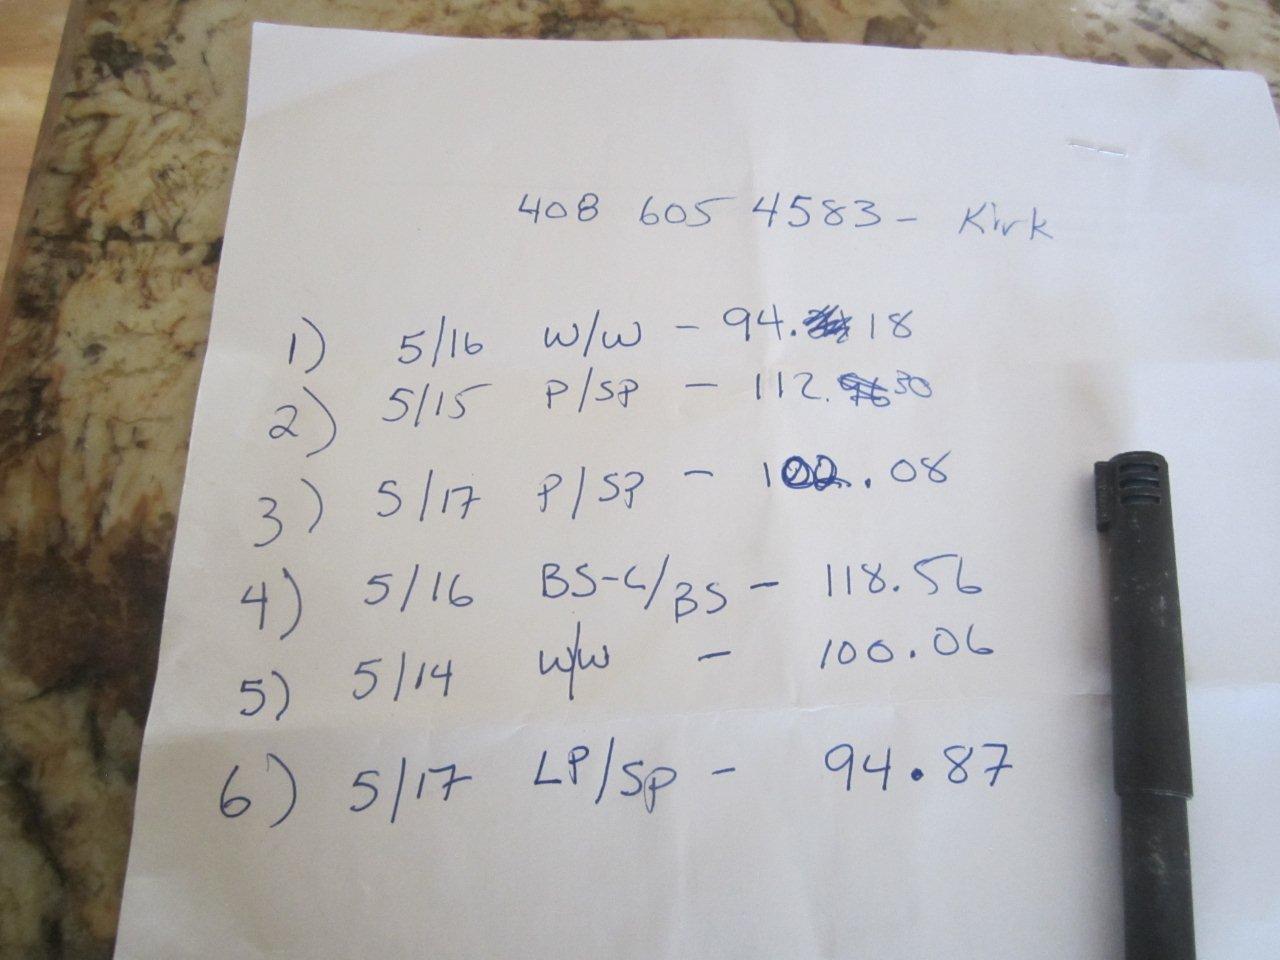 408 605 4583 - Kirk
1) 5/16 W/W - 94.18
2) 5/15 P/SP - 112.30
3) 5/17 P/SP - .08
4) 5/16 BS-C/BS - 118.56
5) 5/14 W/W - 100.06
6) 5/17 LP/SP - 94.87